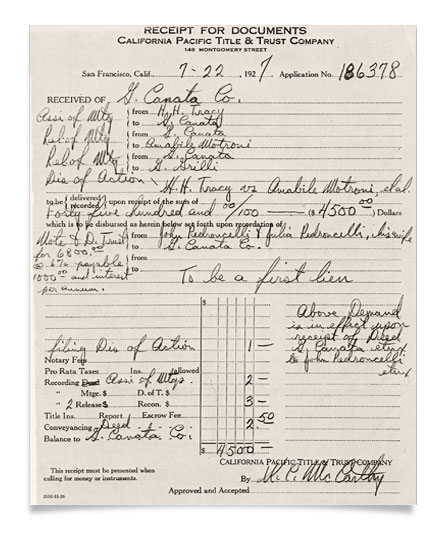 RECEIPT FOR DOCUMENTS
CALIFORNIA PACIFIC TITLE & TRUST COMPANY
148 MONTGOMERY STREET
San Francisco, Calif. 7-22, 1927 Application No. 186378
RECEIVED OF G. Canata Co.
Assi of Mtg from H. H. Tracy
to G. Canata
Rel of Mtg from G. Canata
to Anabile Motroni
Rel of Mtg from G. Canata
to G. Grilli
Dis of Action H. H. Tracy vs Anabile Motroni, et al.
to be delivered recorded upon receipt of the sum of
Forty five hundred and 00/100 ($ 4500.00) Dollars
which is to be disbursed as herein below set forth upon recordation of
Note & D. Trust from John Pedroncelli & Julia Pedroncelli, his wife
for 6800.00 to G. Canata Co.
@ 6% payable from
1000.00 and interest to
per annum.
To be a first lien
$
filing Dis of Action 1 —
Notary Fees
Pro Rata Taxes Ins. allowed
Recording Deed Assi of Mtgs. 2 —
" Mtge. $ D. of T. $
" 2 Release $ Recon. $ 3 —
Title Ins. Report Escrow Fee
Conveyancing Deed 2.50
Balance to G. Canata Co.
$ 4500 —
Above Demand
is in effect upon
receipt of Deed
G. Canata etux
to John Pedroncelli
etux
CALIFORNIA PACIFIC TITLE & TRUST COMPANY
This receipt must be presented when
calling for money or instruments.
By McCarthy
Approved and Accepted